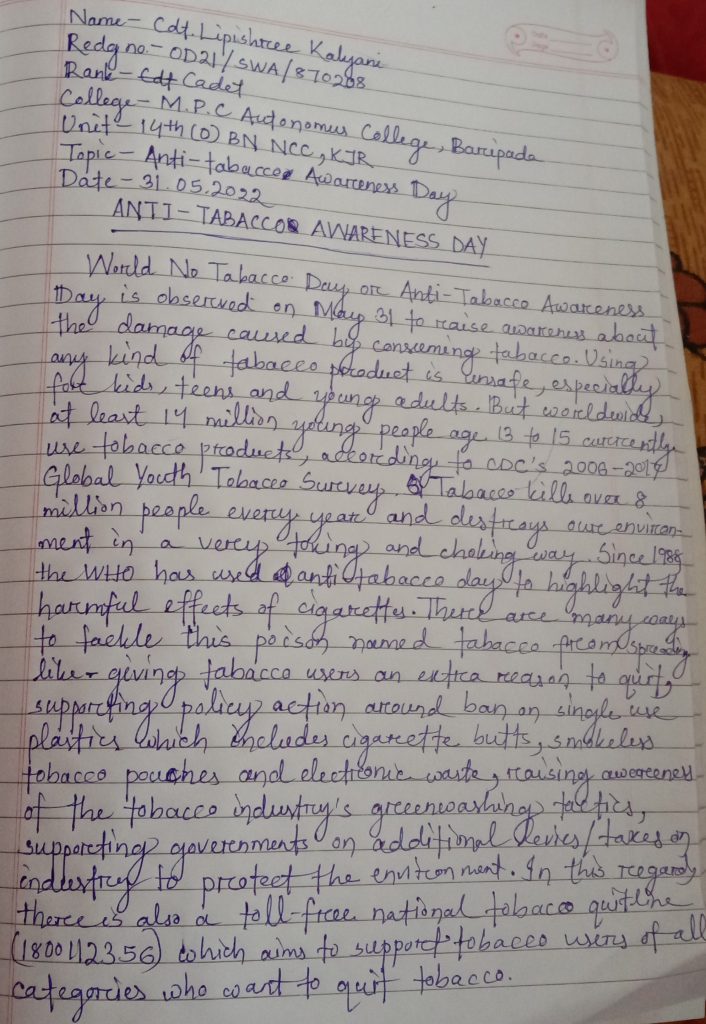 Name- Cdt. Lipishree Kalyani
Redg no.- OD21/SWA/870208
Rank- Cdt Cadet
College- M.P.C Autonomus College, Baripada
Unit- 14th (O) BN NCC, KJR
Topic- Anti-tabacco Awareness Day
Date- 31.05.2022
ANTI-TABACCO AWARENESS DAY
World No Tabacco Day or Anti-Tabacco Awareness
Day is observed on May 31 to raise awareness about
the damage caused by consuming tabacco. Using
any kind of tabacco product is unsafe, especially
for kids, teens and young adults. But worldwide,
at least 14 million young people age 13 to 15 currently
use tobacco products, according to CDC's 2006-2017
Global Youth Tobacco Survey. Tabacco kills over 8
million people every year and destroys our environ-
ment in a very toxing and choking way. Since 1988
the WHO has used anti tabacco day to highlight the
harmful effects of cigarettes. There are many ways
to tackle this poison named tabacco from spreading
like- giving tabacco users an extra reason to quit,
supporting policy action around ban on single use
plastics which includes cigarette butts, smokeless
tobacco pouches and electronic waste, raising awareness
of the tobacco industry's greenwashing tactics,
supporting governments on additional levies/taxes on
industry to protect the environment. In this regards
there is also a toll-free national tobacco quitline
(1800112356) which aims to support tobacco users of all
categories who want to quit tobacco.